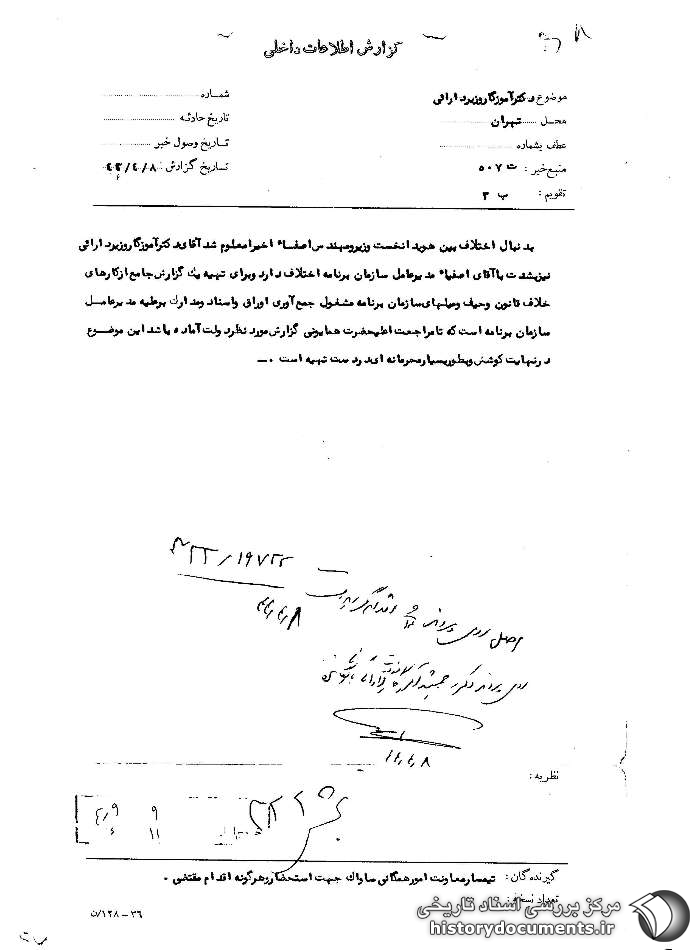 گزارش اطلاعات داخلی
موضوع دکتر آموزگار وزیر دارائی
محل تهران
عطف بشماره
منبع خبر : ت ۵۰۷
تقویم : ب ۲
شماره
تاریخ حادثه
تاریخ وصول خبر
تاریخ گزارش : ۴۴/۴/۸
بدنبال اختلاف بین هویدا نخست وزیر و مهندس اصفیاء اخیرا معلوم شد آقای دکتر آموزگار وزیر دارائی
نیز بشدت با آقای اصفیاء مدیرعامل سازمان برنامه اختلاف دارد و برای تهیه یک گزارش جامع از کارهای
خلاف قانون و حیف و میلهای سازمان برنامه مشغول جمع آوری اوراق و اسناد و مدارک برعلیه مدیرعامل
سازمان برنامه است که تا مراجعت اعلیحضرت همایونی گزارش مورد نظر دولت آماده باشد این موضوع
در نهایت کوشش و بطور بسیار محرمانه ای در دست تهیه است .
۳۲۲/۱۹۷۲۲
۴۴/۴/۸
اصل روی پرونده
روی پرونده دکتر جمشید آموزگار
۴۴/۴/۸
نظریه :
گیرندگان : تیمسار معاونت امور همگانی ساواک جهت استحضار و هرگونه اقدام مقتضی .
تعداد نسخه
۳۶ – ۱۲۸/ن
مرکز بررسی اسناد تاریخی
historydocuments.ir